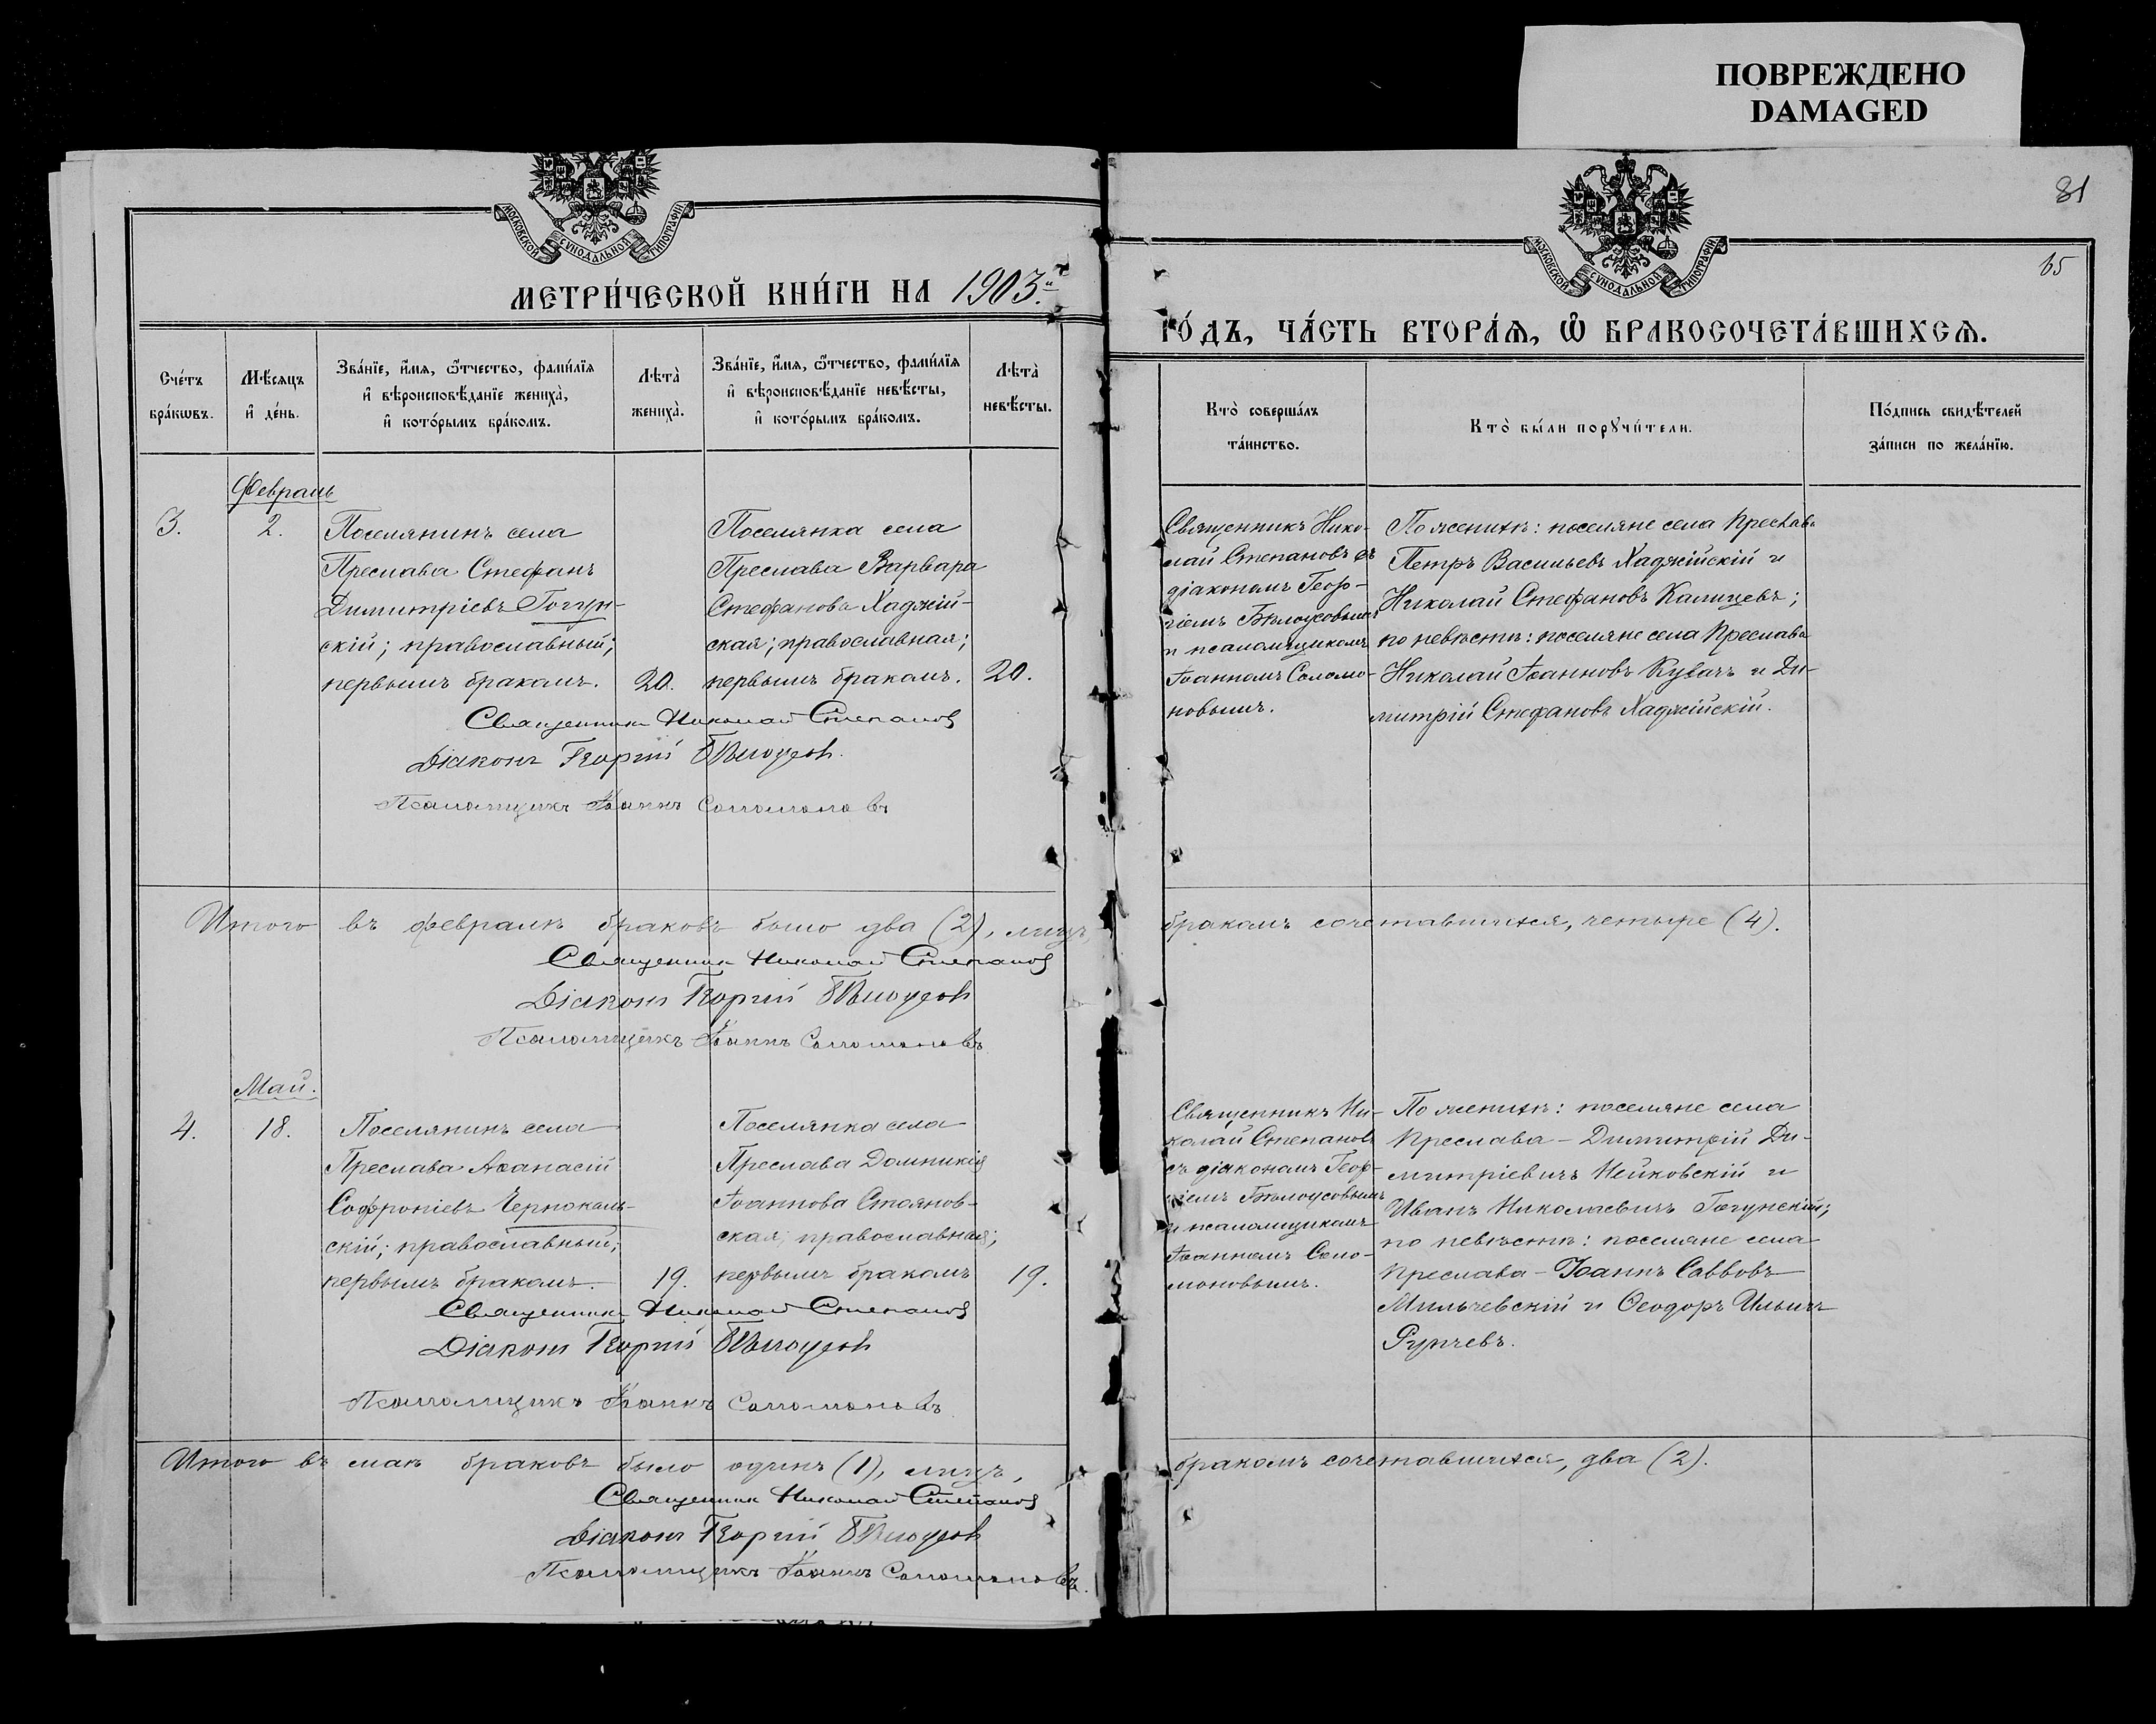 ПОВРЕЖДЕНО
DAMAGED
81
65
МОСКОВСКОЙ СѴНОДАЛЬНОЙ ТИПОГРАФІИ
МОСКОВСКОЙ СѴНОДАЛЬНОЙ ТИПОГРАФІИ
МЕТРИ́ЧЕСКОЙ КНИ́ГИ НА 1903.й
ГО́ДЪ, ЧА́СТЬ ВТОРА́Ѧ, Ѡ҆ БРАКОСОЧЕТА́ВШИХСѦ.
Сче́тъ
бра́кѡвъ.
Мѣ́сяцъ
и҆ де́нь.
Зва́нїе, и҆́мѧ, ѻ҆́тчество, фами́лїѧ
и҆ вѣроисповѣ́данїе жениха̀,
и҆ кото́рымъ бра́комъ.
Лѣта̀
жениха̀.
Зва́нїе, и҆́мѧ, ѻ҆́тчество, фами́лїѧ
и҆ вѣроисповѣ́данїе невѣ́сты,
и҆ кото́рымъ бра́комъ.
Лѣта̀
невѣ́сты.
Кто̀ соверша́лъ
та́инство.
Кто̀ бы́ли порꙋчи́тели.
По́дпись свидѣ́телей
за́писи по жела́нїю.
Февраль
3.
2.
Поселянинъ села
Преслава Стефанъ
Димитріевъ Гогун-
скій; православный;
первымъ бракомъ.
20.
Поселянка села
Преслава Варвара
Стефанова Хаджій-
ская; православная;
первымъ бракомъ.
20.
Священникъ Нико-
лай Степановъ съ
діакономъ Геор-
гіемъ Бѣлоусовымъ
и псаломщикомъ
Іоанномъ Соломо-
новымъ.
По женихѣ: поселяне села Преслава
Петръ Васильевъ Хаджійскій и
Николай Стефановъ Калицевъ;
по невѣстѣ: поселяне села Преслава
Николай Іоанновъ Кувачъ и Ди-
митрій Стефановъ Хаджійскій.
Священникъ Николай Степановъ
Діаконъ Георгій Бѣлоусовъ.
Псаломщикъ Іоаннъ Соломоновъ
Итого въ февралѣ браковъ было два (2), лицъ,
бракомъ сочетавшихся, четыре (4).
Священникъ Николай Степановъ
Діаконъ Георгій Бѣлоусовъ
Псаломщикъ Іоаннъ Соломоновъ
Май.
4.
18.
Поселянинъ села
Преслава Аѳанасій
Софроніевъ Чернокаль-
скій; православный;
первымъ бракомъ.
19.
Поселянка села
Преслава Домникія
Іоаннова Стоянов-
ская; православная;
первымъ бракомъ
19.
Священникъ Ни-
колай Степановъ
съ діакономъ Геор-
гіемъ Бѣлоусовымъ
и псаломщикомъ
Іоанномъ Соло-
моновымъ.
По женихѣ: поселяне села
Преслава – Димитрій Ди-
митріевичъ Нейковскій и
Иванъ Николаевичъ Гогунскій;
по невѣстѣ: поселяне села
Преслава – Іоаннъ Саввовъ
Мильчевскій и Ѳеодоръ Ильичъ
Рунчевъ.
Священникъ Николай Степановъ
Діаконъ Георгій Бѣлоусовъ
Псаломщикъ Іоаннъ Соломоновъ
Итого въ маѣ браковъ было одинъ (1), лицъ,
бракомъ сочетавшихся, два (2).
Священникъ Николай Степановъ
Діаконъ Георгій Бѣлоусовъ
Псаломщикъ Іоаннъ Соломоновъ.